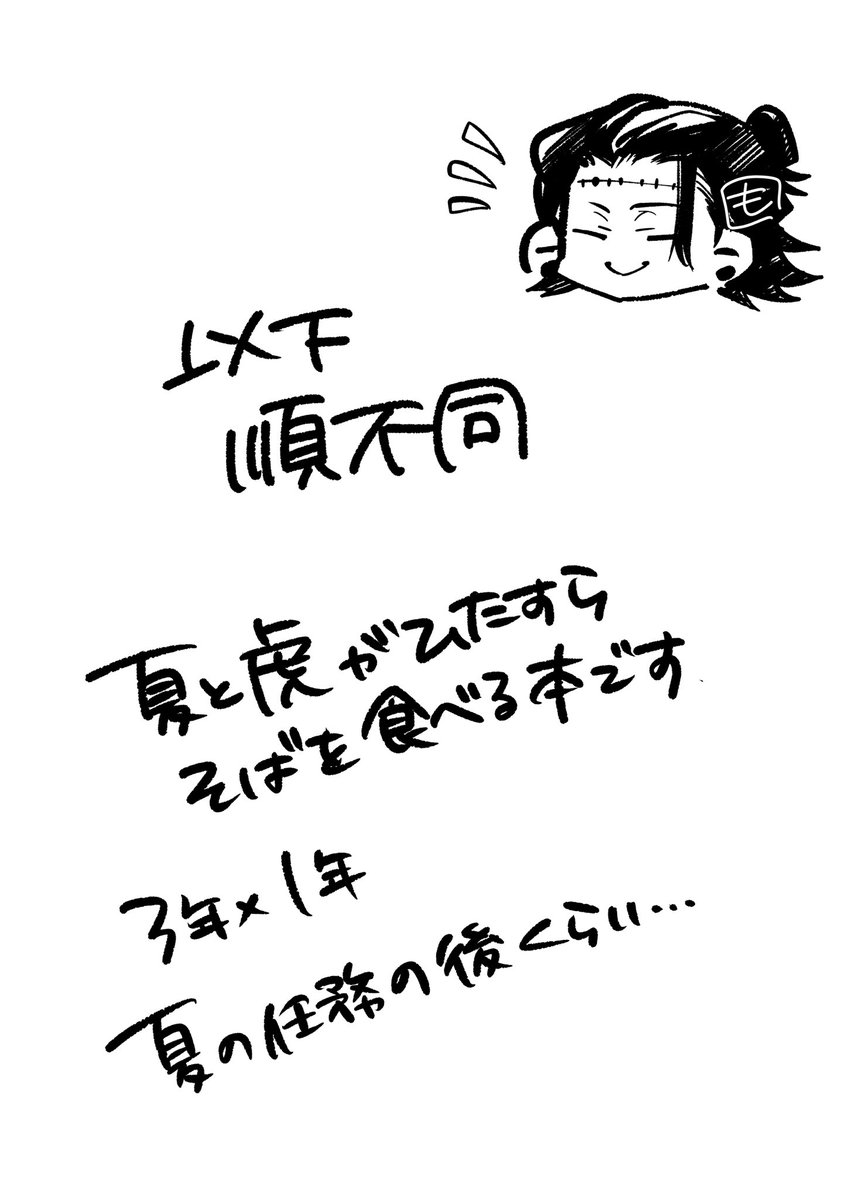 も
以下
順不同
夏と虎がひたすら
そばを食べる本です
3年×1年
夏の任務の後くらい…